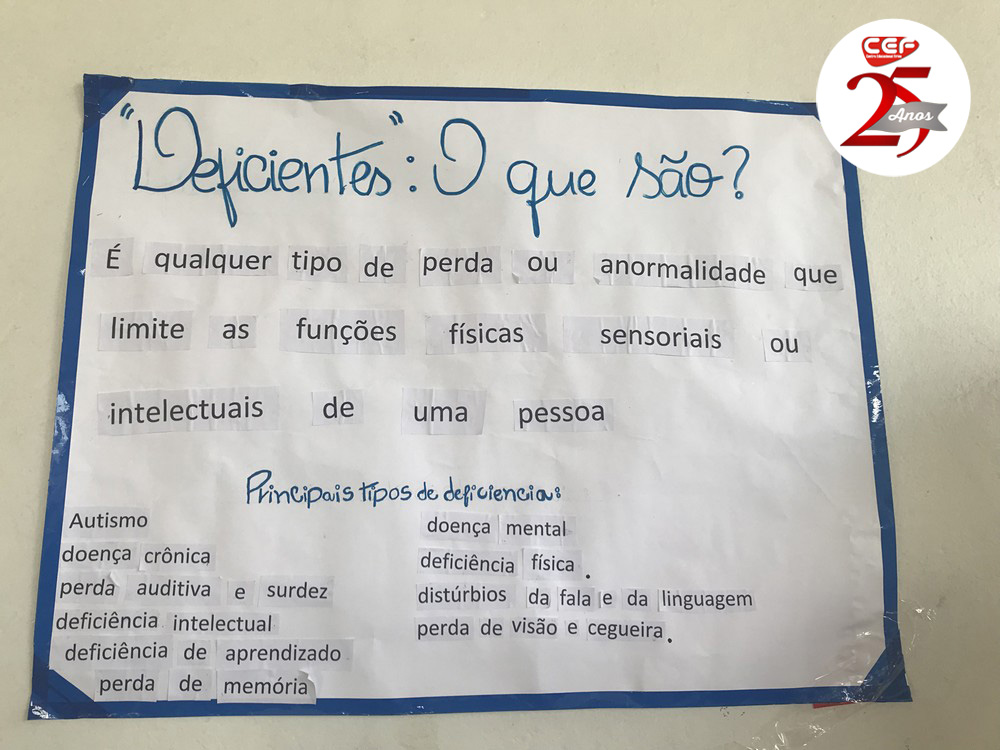 CEF
25
Anos
"Deficientes": O que são?
É qualquer tipo de perda ou anormalidade que
limite as funções físicas sensoriais ou
intelectuais de uma pessoa
Principais tipos de deficiencia:
Autismo
doença crônica
perda auditiva e surdez
deficiência intelectual
deficiência de aprendizado
perda de memória
doença mental
deficiência física.
distúrbios da fala e da linguagem
perda de visão e cegueira.